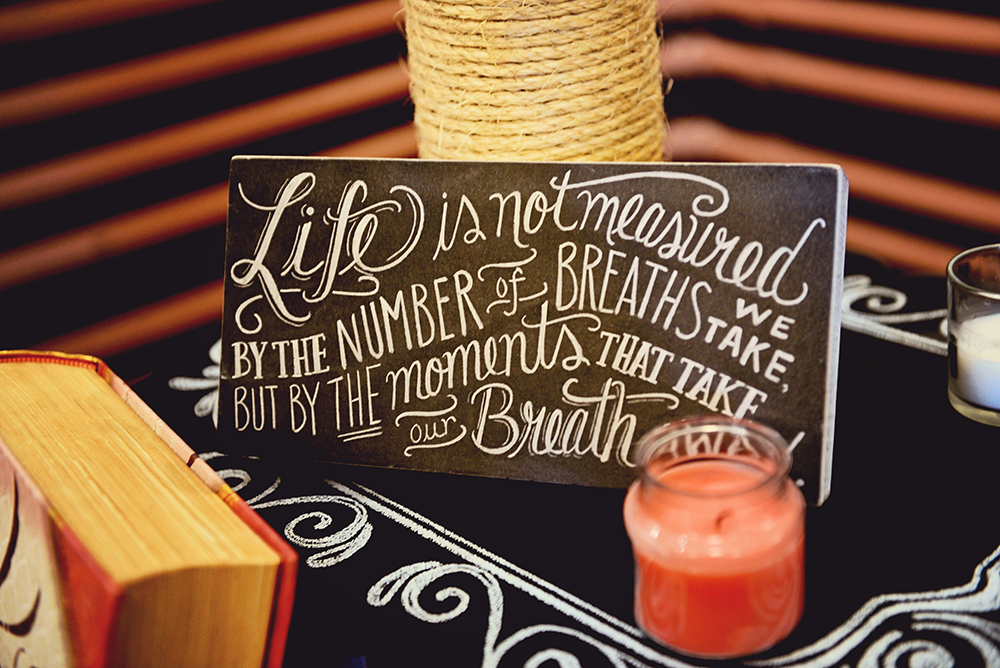 Life is not measured
BY THE NUMBER of BREATHS WE TAKE,
BUT BY THE moments THAT TAKE
our Breath AWAY!